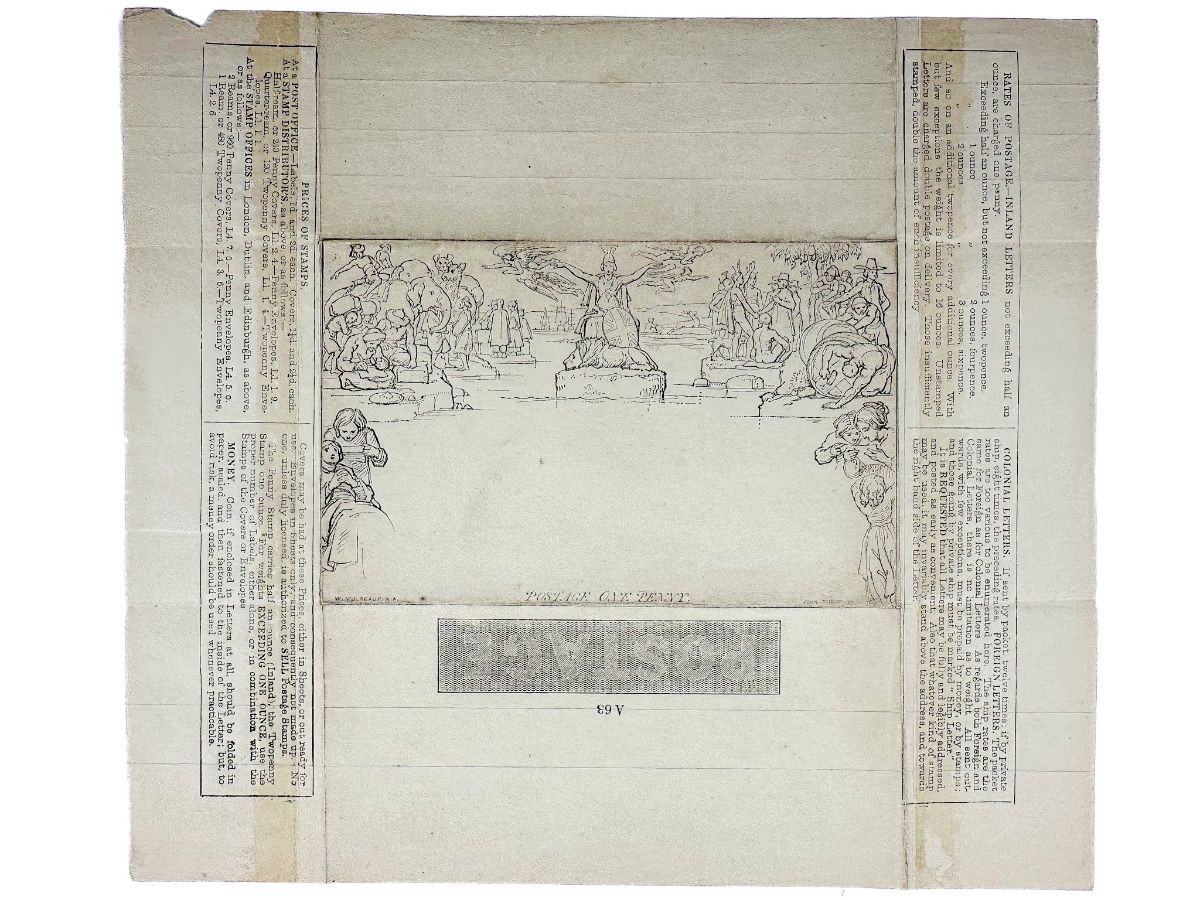 PRICES OF STAMPS.
At a POST OFFICE.—Labels, 1d. and 2d. each. Covers, 1¼d. and 2¼d. each.
At a STAMP DISTRIBUTOR'S, as above, or as follows:—
Half-ream, or 240 Penny Covers, L1. 2. 4.—Penny Envelopes, L1. 1. 9.
Quarter-ream, or 120 Twopenny Covers, L1. 1. 4.—Twopenny Enve-
lopes, L1. 1. 1.
At the STAMP OFFICES in London, Dublin, and Edinburgh, as above,
or as follows:—
2 Reams, or 960 Penny Covers, L4. 7. 0.—Penny Envelopes, L4. 5. 0.
1 Ream or 480 Twopenny Covers, L4. 3. 6.—Twopenny Envelopes,
L4. 2. 6
Covers may be had at these Prices, either in Sheets, or cut ready for
use. Envelopes in Sheets only, and consequently not made up. No
one, unless duly licensed, is authorized to SELL Postage Stamps.
The Penny Stamp carries half an ounce (Inland), the Twopenny
Stamp one ounce. For weights EXCEEDING ONE OUNCE, use the
proper number of Labels, either alone, or in combination with the
Stamps of the Covers or Envelopes.
MONEY. Coin, if enclosed in Letters at all, should be folded in
paper, sealed, and then fastened to the inside of the Letter; but to
avoid risk, a money order should be used whenever practicable.
W. MULREADY, R.A.
POSTAGE ONE PENNY.
JOHN
POSTAGE
A 63
RATES OF POSTAGE.—INLAND LETTERS not exceeding half an
ounce, are charged one penny.
Exceeding half an ounce, but not exceeding 1 ounce, twopence.
" 1 ounce " 2 ounces, fourpence.
" 2 ounces " 3 ounces, sixpence.
And so on an additional twopence for every additional ounce. With
but few exceptions the weight is limited to 16 ounces. Unstamped
Letters are charged double postage on delivery. Those insufficiently
stamped, double the amount of such insufficiency.
COLONIAL LETTERS. If sent by packet, twelve times; if by private
ship, eight times, the preceding rates. FOREIGN LETTERS. The packet
rates are too various to be enumerated here. The ship rates are the
same for Foreign as for Colonial Letters. As regards both Foreign and
Colonial Letters, there is no limitation as to weight. All sent out-
wards, with few exceptions, must be prepaid by money, or by stamps;
and those going by private ship must be marked "Ship Letter."
It is REQUESTED that all Letters may be fully and legibly addressed,
and posted as early as convenient. Also that whatever kind of stamp
may be used, it may invariably stand above the address, and towards
the right hand side of the Letter.